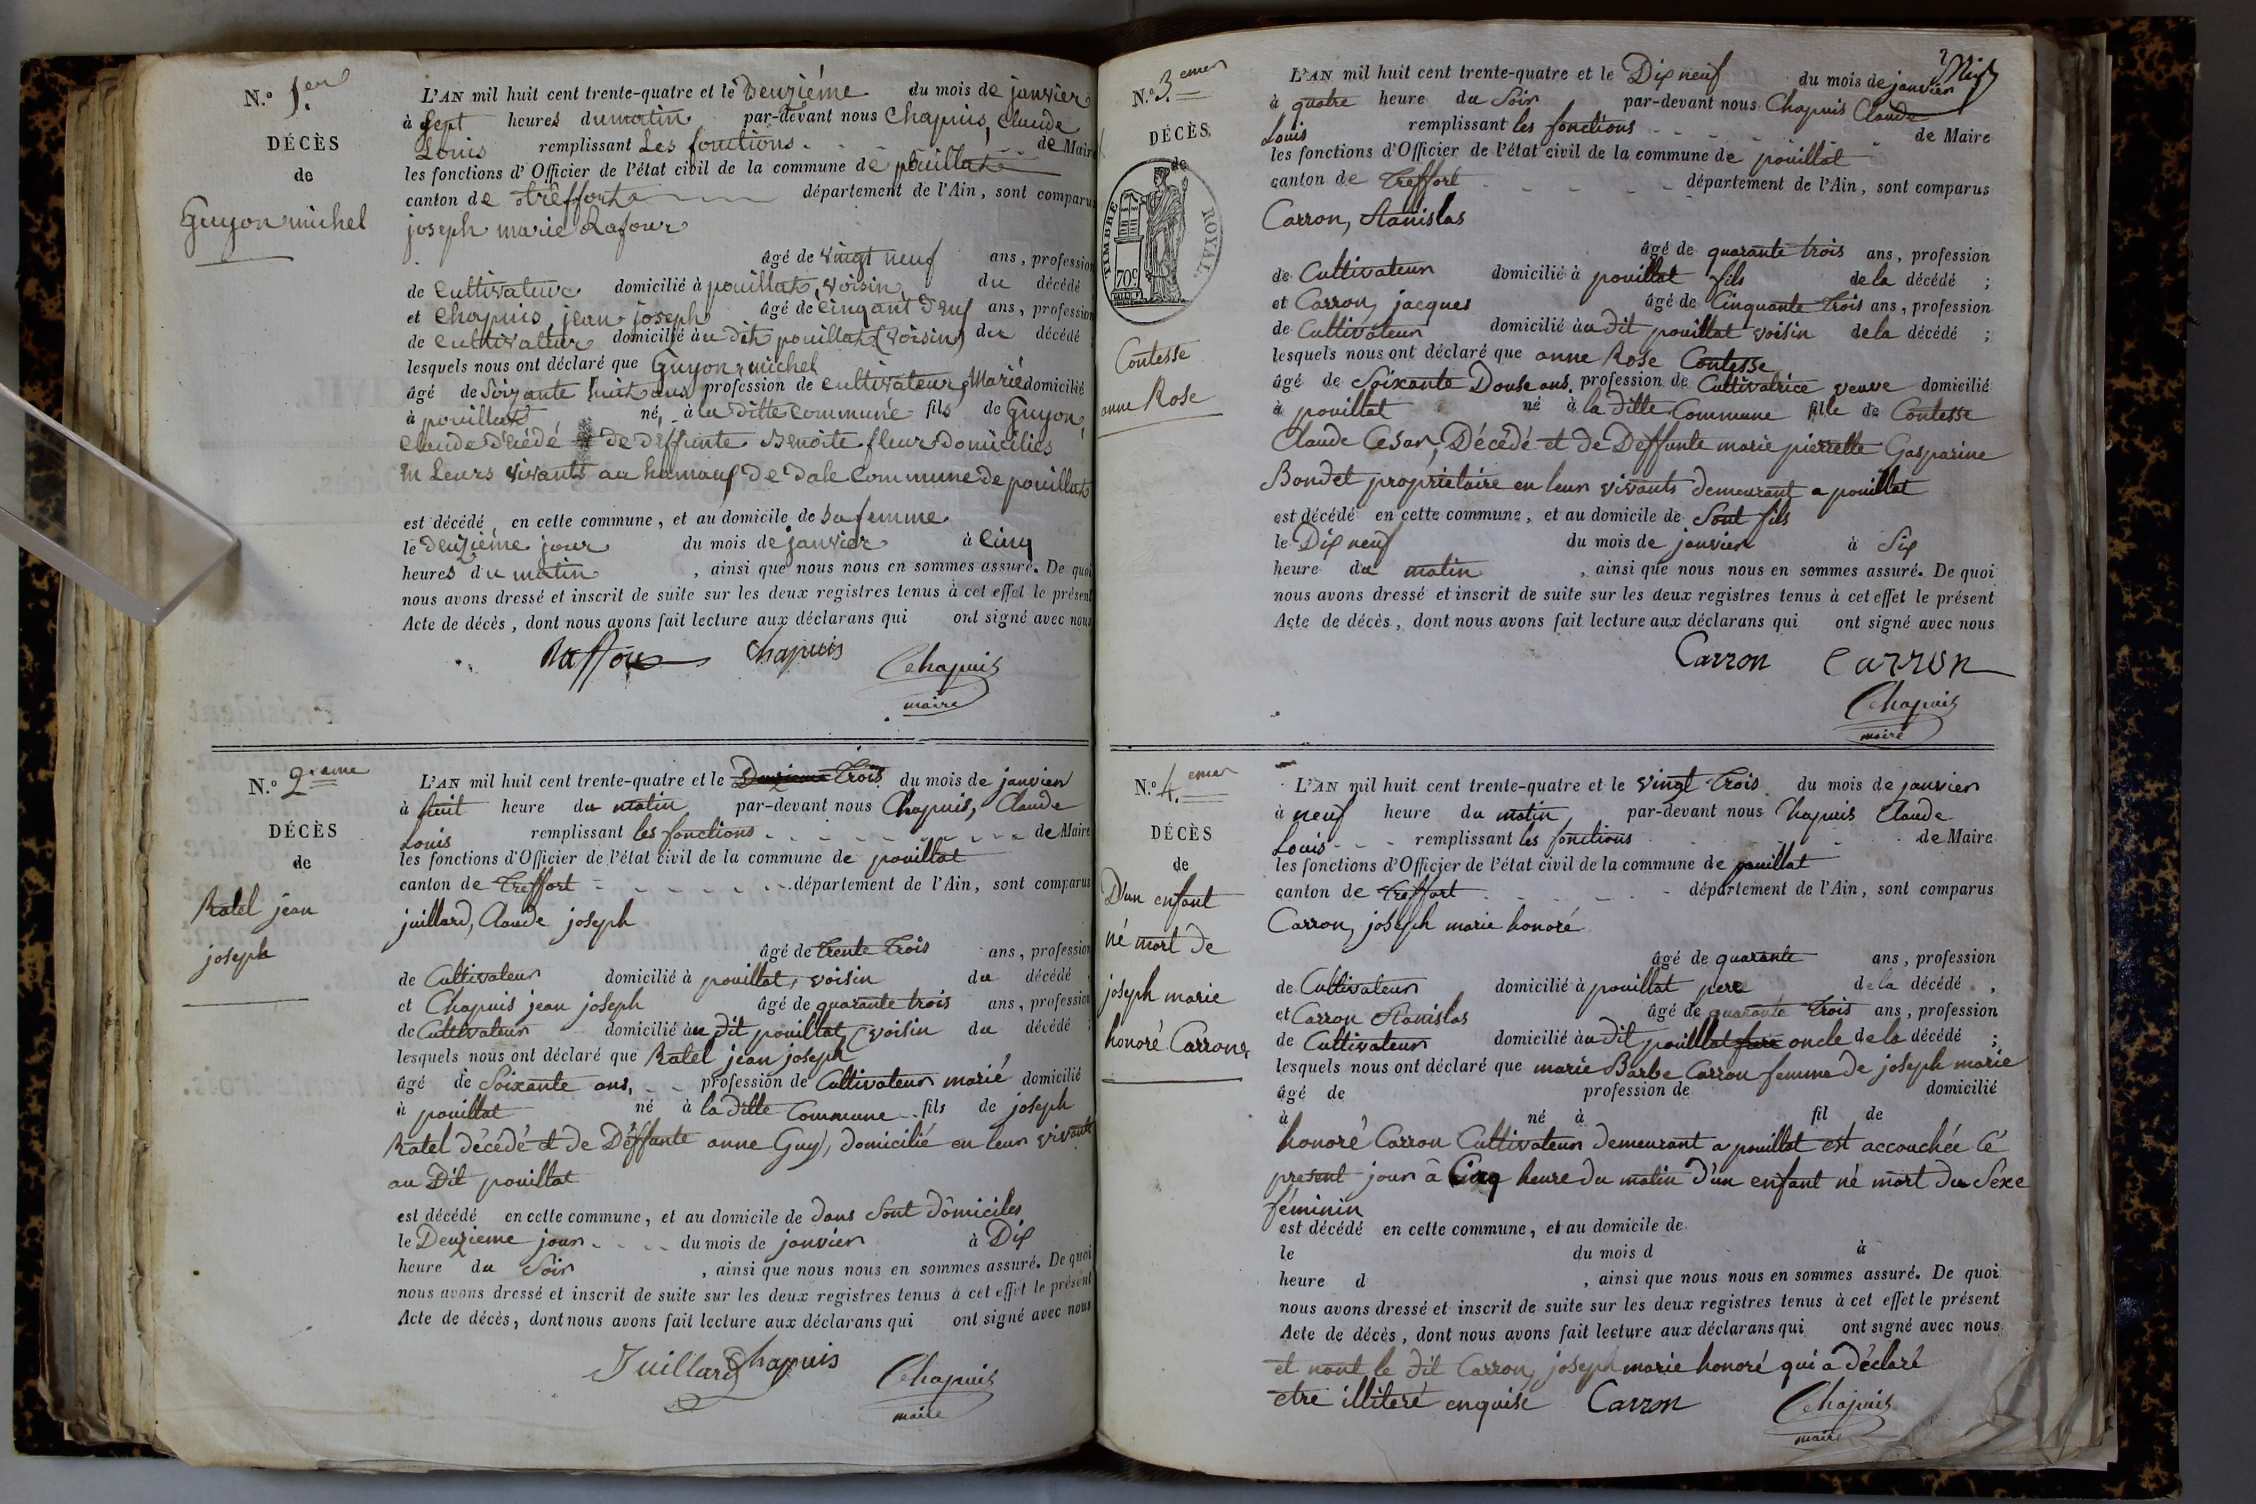 N.º 1.er
DÉCÈS
de
Guyon michel
L'AN mil huit cent trente-quatre et le Deuziéme du mois de janvier
à sept heures du matin par-devant nous Chapuis, Claude
Louis remplissant Les fonctions de Maire
les fonctions d'Officier de l'état civil de la commune de pouillat
canton de treffort département de l'Ain, sont comparus
joseph marie Rafour
âgé de vingt neuf ans, profession
de Cultivateur domicilié à pouillat, voisin du décédé
et Chapuis, jean joseph âgé de Cinqant Deuf ans, profession
de Cultivatur domicilié àu dit pouillat (voisin) du décédé
lesquels nous ont déclaré que Guyon, michel
âgé de Soixante huit ans profession de Cultivateur, Marié domicilié
à pouillat né, à la ditte Commune fils de Guyon,
Claude décédé de deffunte Benoite fleur Domiciliés
en Leurs vivants au hamauf De dale Commune De pouillat
est décédé en cette commune, et au domicile de sa femme
le deuziéme jour du mois de janvier à Cinq
heures du matin, ainsi que nous nous en sommes assuré. De quoi
nous avons dressé et inscrit de suite sur les deux registres tenus à cet effet le présent
Acte de décès, dont nous avons fait lecture aux déclarans qui ont signé avec nous
Raffour Chapuis Chapuis
maire
N.º 2.ieme
DÉCÈS
de
Ratel jean
joseph
L'AN mil huit cent trente-quatre et le Deuzieme Trois du mois de janvier
à huit heure du matin par-devant nous Chapuis, Claude
Louis remplissant les fonctions de Maire
les fonctions d'Officier de l'état civil de la commune de pouillat
canton de Treffort département de l'Ain, sont comparus
juillard, Claude joseph
âgé de trente Trois ans, profession
de Cultivateur domicilié à pouillat, voisin du décédé
et Chapuis jean joseph âgé de quarante trois ans, profession
de Cultivateur domicilié àu dit pouillat, voisin du décédé ;
lesquels nous ont déclaré que Ratel jean joseph
âgé de Soixante ans, profession de Cultivateur marié domicilié
à pouillat né à la ditte Commune fils de joseph
Ratel décédé et de Deffunte anne Guy, domicilié en leur vivants
au Dit pouillat
est décédé en cette commune, et au domicile de dans Sont dômiciles
le Deuzieme jour du mois de janvier à Dix
heure du Soir, ainsi que nous nous en sommes assuré. De quoi
nous avons dressé et inscrit de suite sur les deux registres tenus à cet effet le présent
Acte de décès, dont nous avons fait lecture aux déclarans qui ont signé avec nous
Juillard Chapuis Chapuis
maire
N.º 3.emer
DÉCÈS
de
TIMBRE ROYAL.
70c
Contesse
anne Rose
L'AN mil huit cent trente-quatre et le Dix neuf du mois de janvier
à quatre heure du Soir par-devant nous Chapuis Claude
Louis remplissant les fonctions de Maire
les fonctions d'Officier de l'état civil de la commune de pouillat
canton de Treffort département de l'Ain, sont comparus
Carron, Stanislas
âgé de quarante trois ans, profession
de Cultivateur domicilié à pouillat fils de la décédé ;
et Carron, jacques âgé de Cinquante trois ans, profession
de Cultivateur domicilié àu dit pouillat voisin de la décédé ;
lesquels nous ont déclaré que anne Rose Contesse
âgé de Soixante Douse ans profession de Cultivatrice veuve domicilié
à pouillat né à la ditte Commune fille de Contesse
Claude Cesar, Décédé et de Deffunte marie pierrette Gasparine
Bondet propriétaire en leur vivants demeurant a pouillat
est décédé en cette commune, et au domicile de Sont fils
le Dix neuf du mois de janvier à Six
heure du matin, ainsi que nous nous en sommes assuré. De quoi
nous avons dressé et inscrit de suite sur les deux registres tenus à cet effet le présent
Acte de décès, dont nous avons fait lecture aux déclarans qui ont signé avec nous
Carron Carron
Chapuis
maire
N.º 4.emer
DÉCÈS
de
D'un enfant
né mort de
joseph marie
honoré Carron
L'AN mil huit cent trente-quatre et le vingt trois du mois de janvier
à neuf heure du matin par-devant nous Chapuis Claude
Louis remplissant les fonctions de Maire
les fonctions d'Officier de l'état civil de la commune de pouillat
canton de treffort département de l'Ain, sont comparus
Carron, joseph marie honoré
âgé de quarante ans, profession
de Cultivateur domicilié à pouillat pere de la décédé ,
et Carron Stanislas âgé de quarante trois ans, profession
de Cultivateur domicilié àu dit pouillat frere oncle de la décédé ;
lesquels nous ont déclaré que marie Barbe Carron femme de joseph marie
âgé de profession de domicilié
à né à fil de
honoré Carron Cultivateur demeurant a pouillat est accouchée Cé
present jour à Cinq heure du matin D'un enfant né mort du Sexe
féminin
est décédé en cette commune, et au domicile de
le du mois d à
heure d , ainsi que nous nous en sommes assuré. De quoi
nous avons dressé et inscrit de suite sur les deux registres tenus à cet effet le présent
Acte de décès, dont nous avons fait lecture aux déclarans qui ont signé avec nous
et nont le dit Carron, joseph marie honoré qui a déclaré
etre illiteré enquise Carron Chapuis
maire